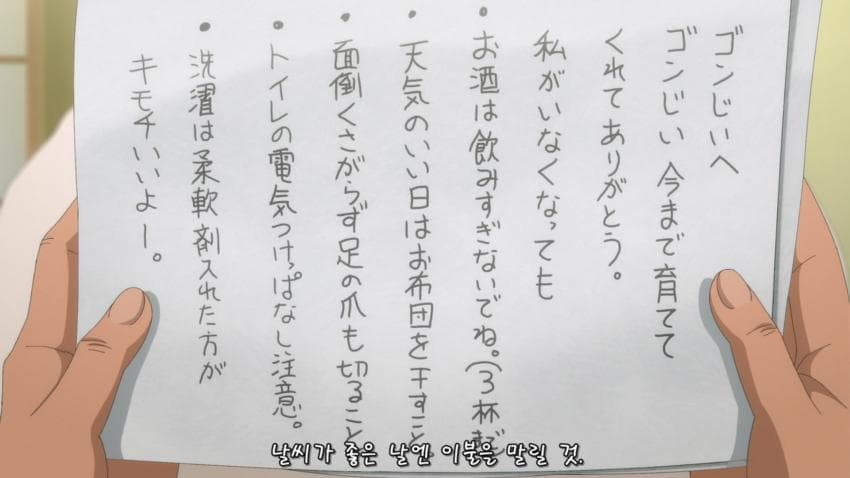 ゴンじいへ
ゴンじい 今まで育てて
くれてありがとう。
私がいなくなっても
• お酒は飲みすぎないでね。(3杯まで
• 天気のいい日はお布団を干すこと
• 面倒くさがらず足の爪も切ること
• トイレの電気つけっぱなし注意。
• 洗濯は柔軟剤入れた方が
キモチいいよー。
날씨가 좋은 날엔 이불을 말릴 것.